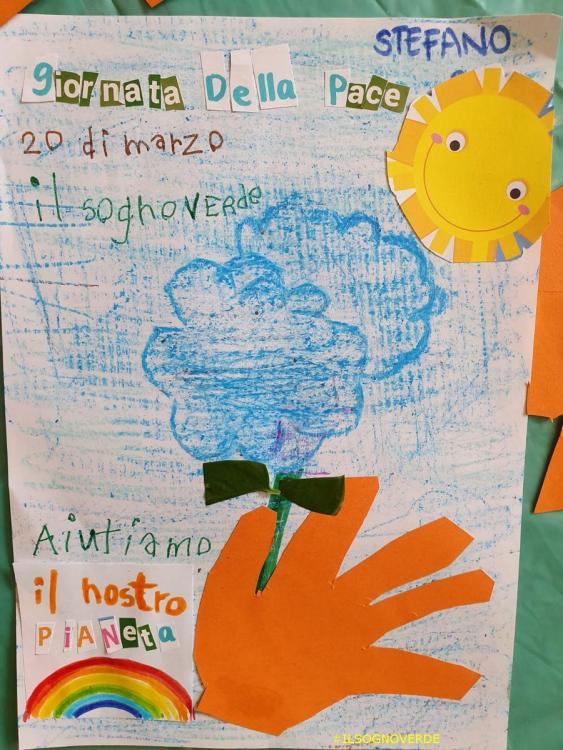 STEFANO
giornata Della Pace
20 di marzo
il sognoVERde
Aiutiamo
il nostro
PiANeta
#ILSOGNOVERDE